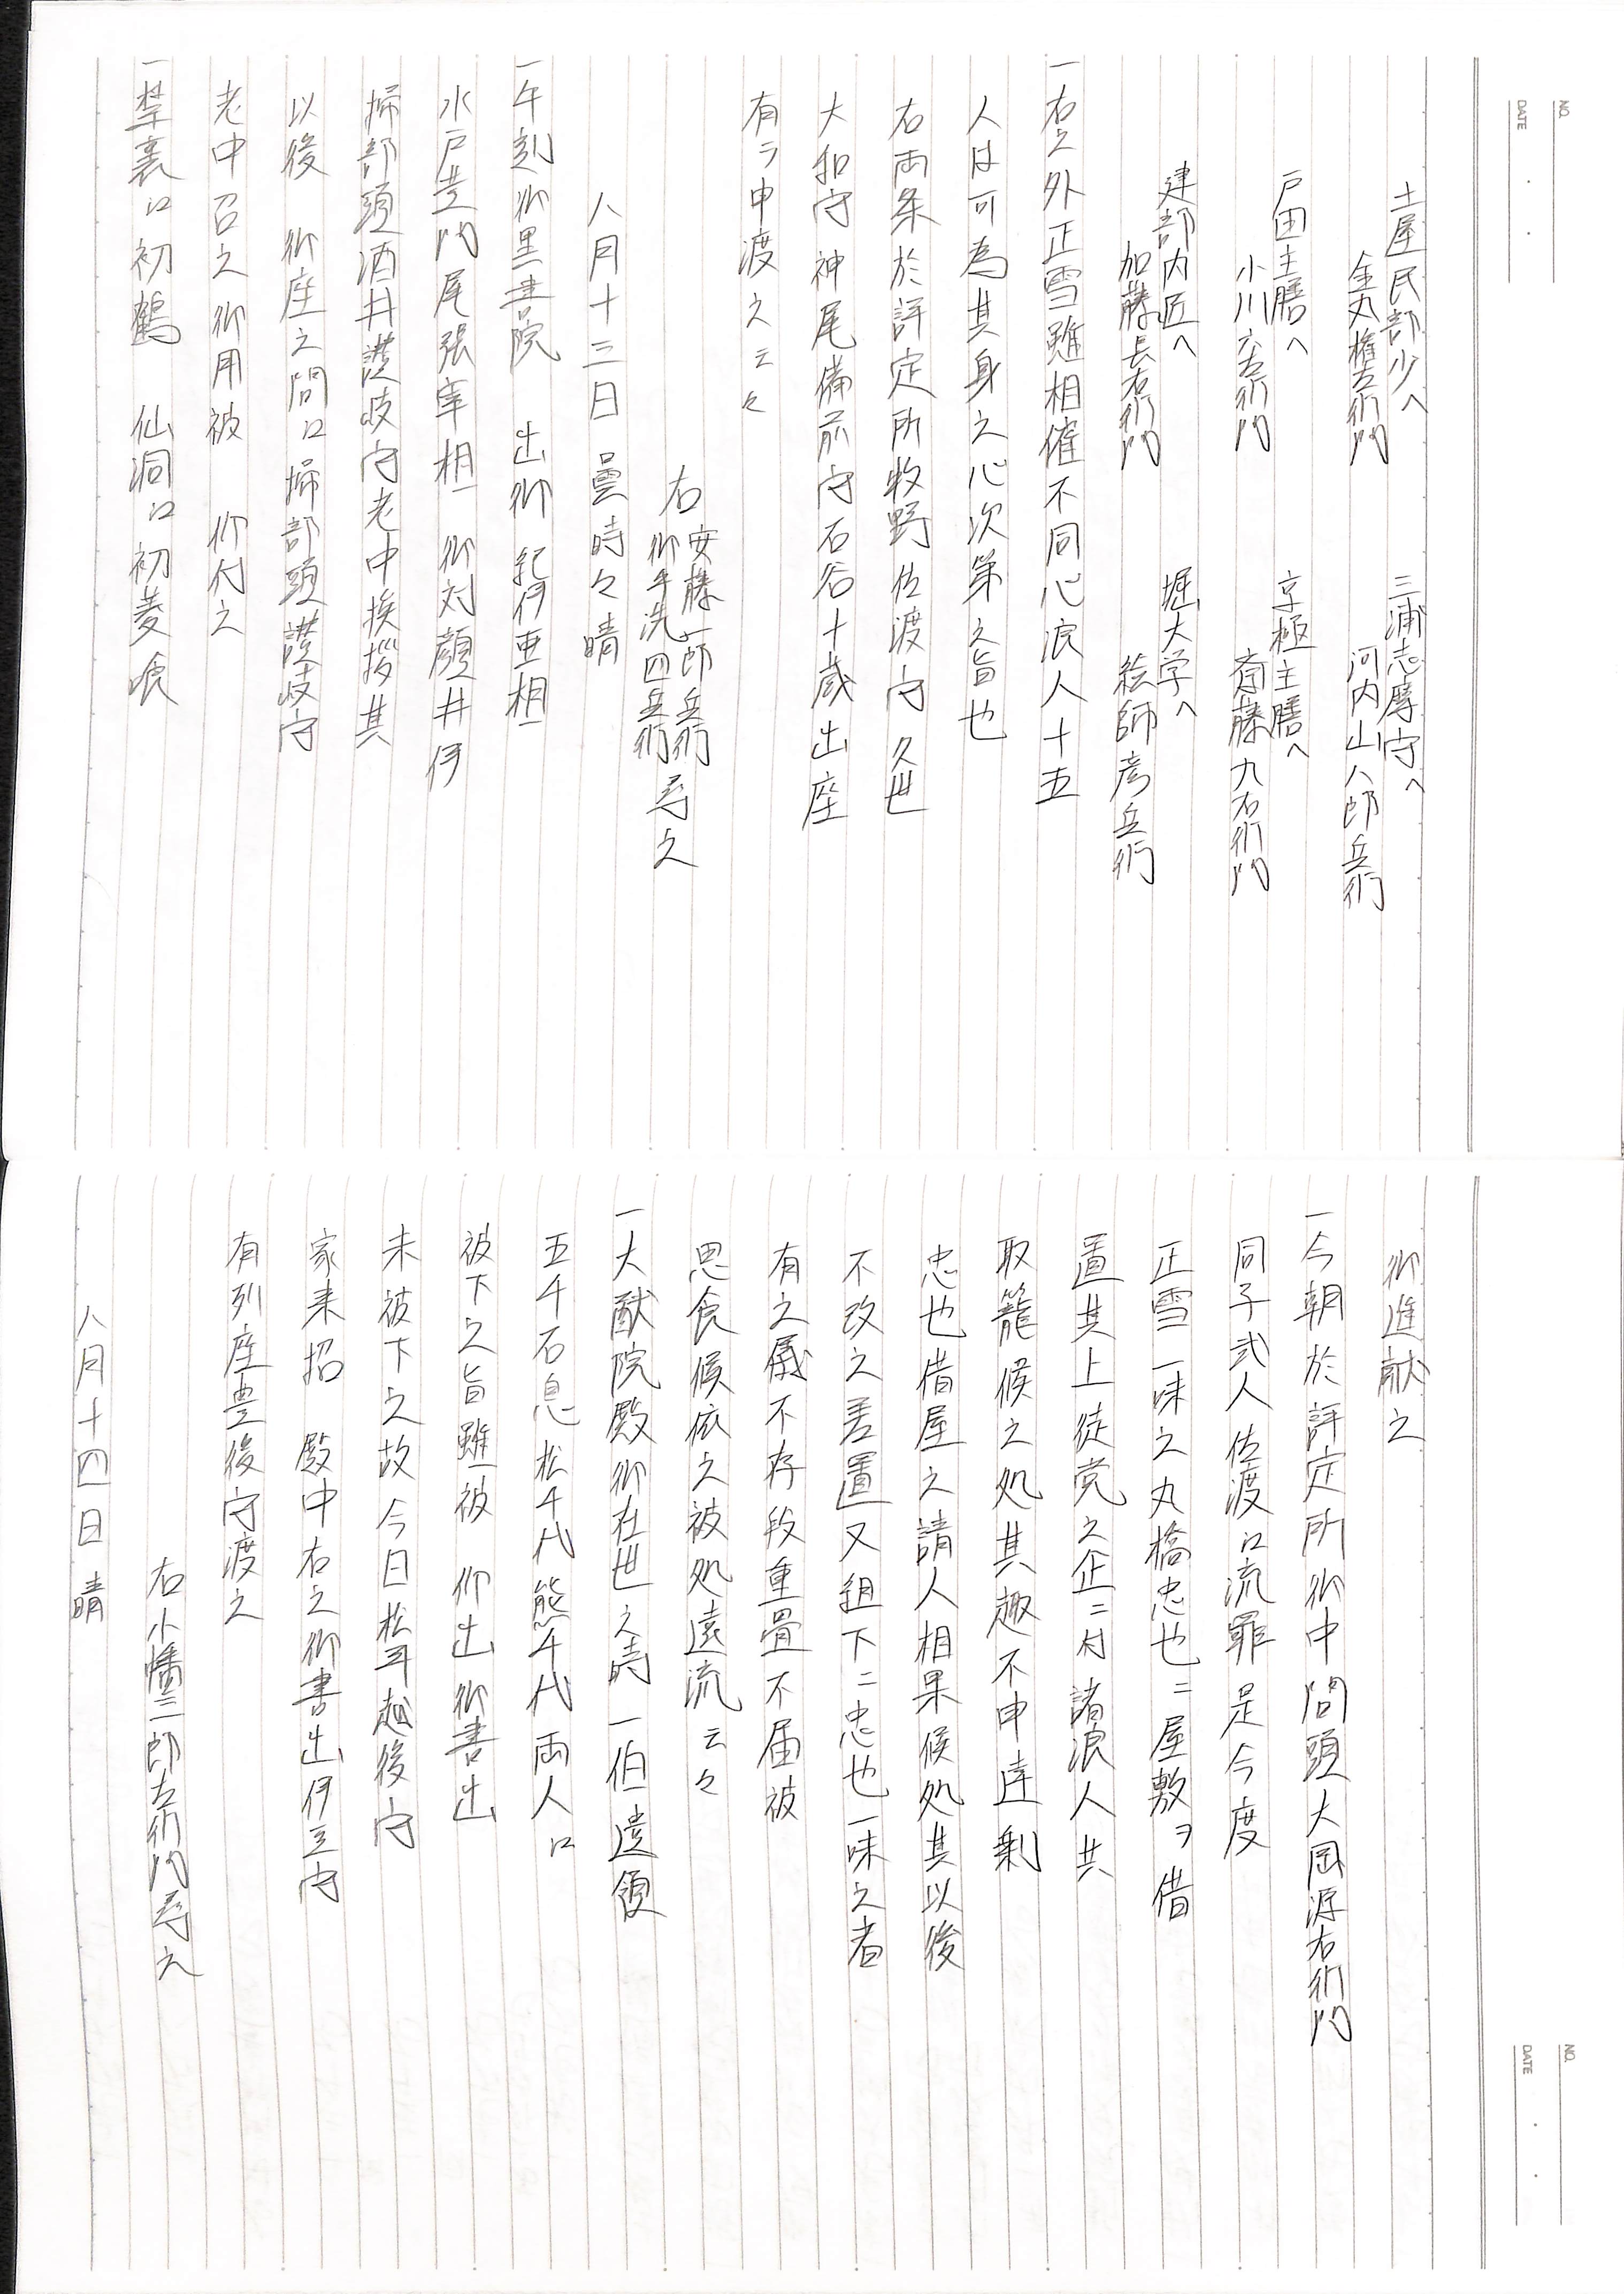 NO.
DATE
土屋民部少へ 三浦志摩守へ
金丸権左衛門 河内山八郎兵衛
戸田主膳へ 京極主膳へ
小川六左衛門 斎藤九右衛門
建部内匠へ 堀大学へ
加藤長右衛門 絵師彦兵衛
一右之外正雪雖相催不同心浪人十五
人は可為其身之心次第之旨也
右両条於評定所牧野佐渡守久世
大和守神尾備前守石谷十蔵出座
有テ申渡之云々
右 安藤一郎兵衛
御手洗四兵衛 尋之
八月十三日曇時々晴
一午刻御黒書院 出御 紀伊亜相
水戸黄門尾張宰相 御対顔井伊
掃部頭酒井讃岐守老中挨拶其
以後 御座之間江掃部頭讃岐守
老中召之御用被 仰付之
一禁裏江初鶴 仙洞江初菱喰
御進献之
一今朝於評定所御中間頭大岡源右衛門
同子弐人佐渡江流罪是今度
正雪一味之丸橋忠也ニ屋敷ヲ借
置其上徒党之企ニ付諸浪人共
取籠候之処其趣不申達剰
忠也借屋之請人相果候処其以後
不改之差置又組下ニ忠也一味之者
有之儀不存段重畳不届被
思食候依之被処遠流云々
一大猷院殿御在世之時一伯遺領
五千石息松千代熊千代両人江
被下之旨雖被 仰出御書出
未被下之故今日松平越後守
家来招 殿中右之御書出伊豆守
有列座豊後守渡之
右小幡三郎左衛門尋之
八月十四日晴
NO.
DATE